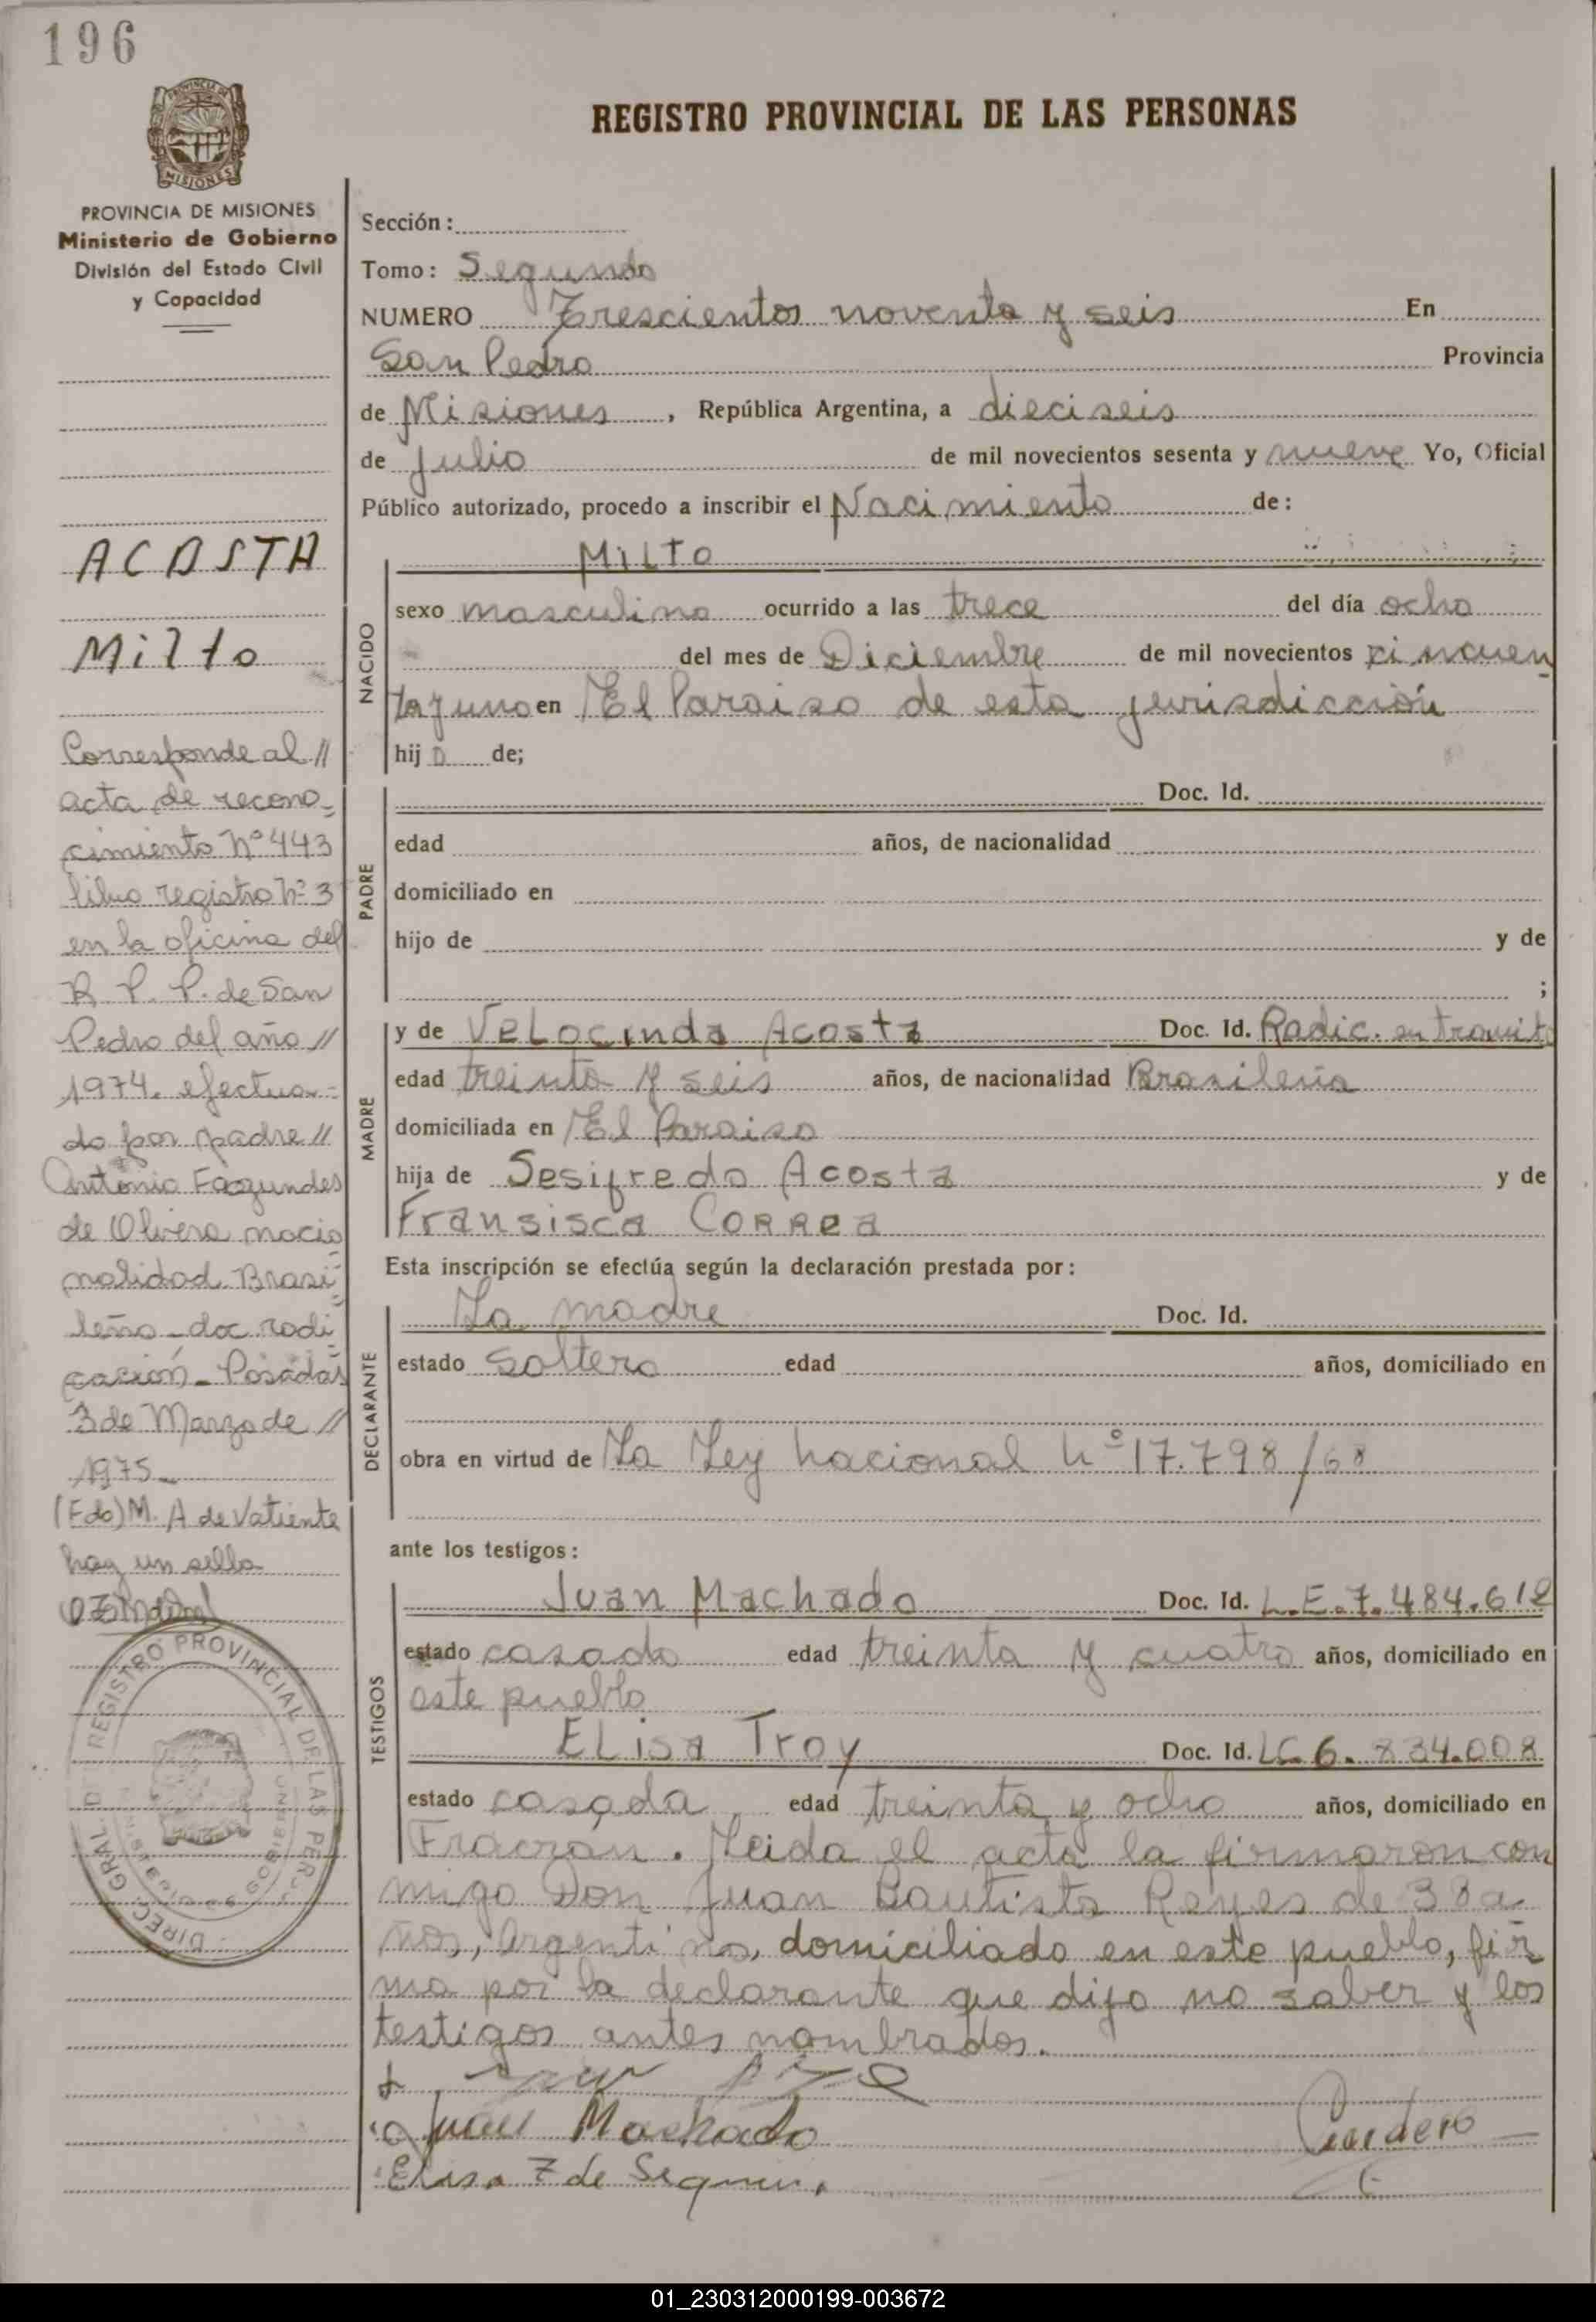 196
PROVINCIA DE MISIONES
MISIONES
PROVINCIA DE MISIONES
Ministerio de Gobierno
División del Estado Civil
y Capacidad
ACOSTA
Milto
Corresponde al //
acta de recono-
cimiento nº 443
libro registro Nº 3
en la oficina del
R. P. P. de San
Pedro del año //
1974. efectua-
do por padre //
Antonio Fagundes
de Olivera nacio
nalidad Brasi-
leño - doc radi
cación - Posadas
3 de Marzo de //
1975
(Fdo) M. A de Vatiente
hay un sello
REGISTRO PROVINCIAL DE LAS PER
DIRECC GRAL DE
REGISTRO PROVINCIAL DE LAS PERSONAS
Sección:
Tomo: Segundo
NUMERO Trescientos noventa y seis En
San Pedro Provincia
de Misiones, República Argentina, a dieciseis
de Julio de mil novecientos sesenta y nueve Yo, Oficial
Público autorizado, procedo a inscribir el Nacimiento de:
NACIDO
MilTo
sexo masculino ocurrido a las trece del día ocho
del mes de Diciembre de mil novecientos cincuen
ta y uno en El Paraiso de esta jurisdicción
hijo de;
PADRE
Doc. Id.
edad años, de nacionalidad
domiciliado en
hijo de y de
;
MADRE
y de VeLocinda Acosta Doc. Id. Radic. en tramite
edad treinta y seis años, de nacionalidad Brasileña
domiciliada en El Paraiso
hija de Sesifredo Acosta y de
Fransisca CoRRea
Esta inscripción se efectúa según la declaración prestada por:
DECLARANTE
La madre Doc. Id.
estado Soltera edad años, domiciliado en
obra en virtud de La Ley nacional Nº 17.798/68
ante los testigos:
TESTIGOS
Juan Machado Doc. Id. L.E.7.484.612
estado casado edad treinta y cuatro años, domiciliado en
este pueblo
ELisa Troy Doc. Id. LC 6. 834.008
estado casada edad treinta y ocho años, domiciliado en
Fracrán. Leida el acta la firmaron con
migo Don Juan Bautista Reyes de 38 a
ños, argentino, domiciliado en este pueblo, fir
ma por la declarante que dijo no saber y los
testigos antes nombrados.
Juan Machado
Elisa T de
01_230312000199-003672